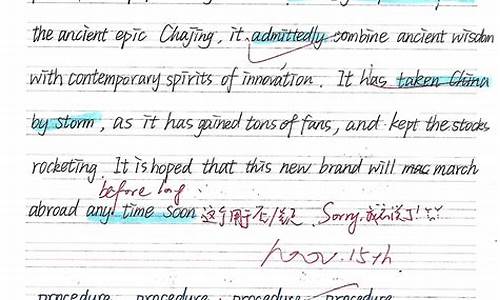 the ancient epic Chajing, it admittedly combine ancient wisdom
with contemporary spirits of innovation. It has taken China
by storm, as it has gained tons of fans, and kept the stocks
rocketing. It is hoped that this new brand will mac march
before long
abroad any time soon 这个用在 Sorry.
Nov. 15th.
procedure procedure procedure procedure